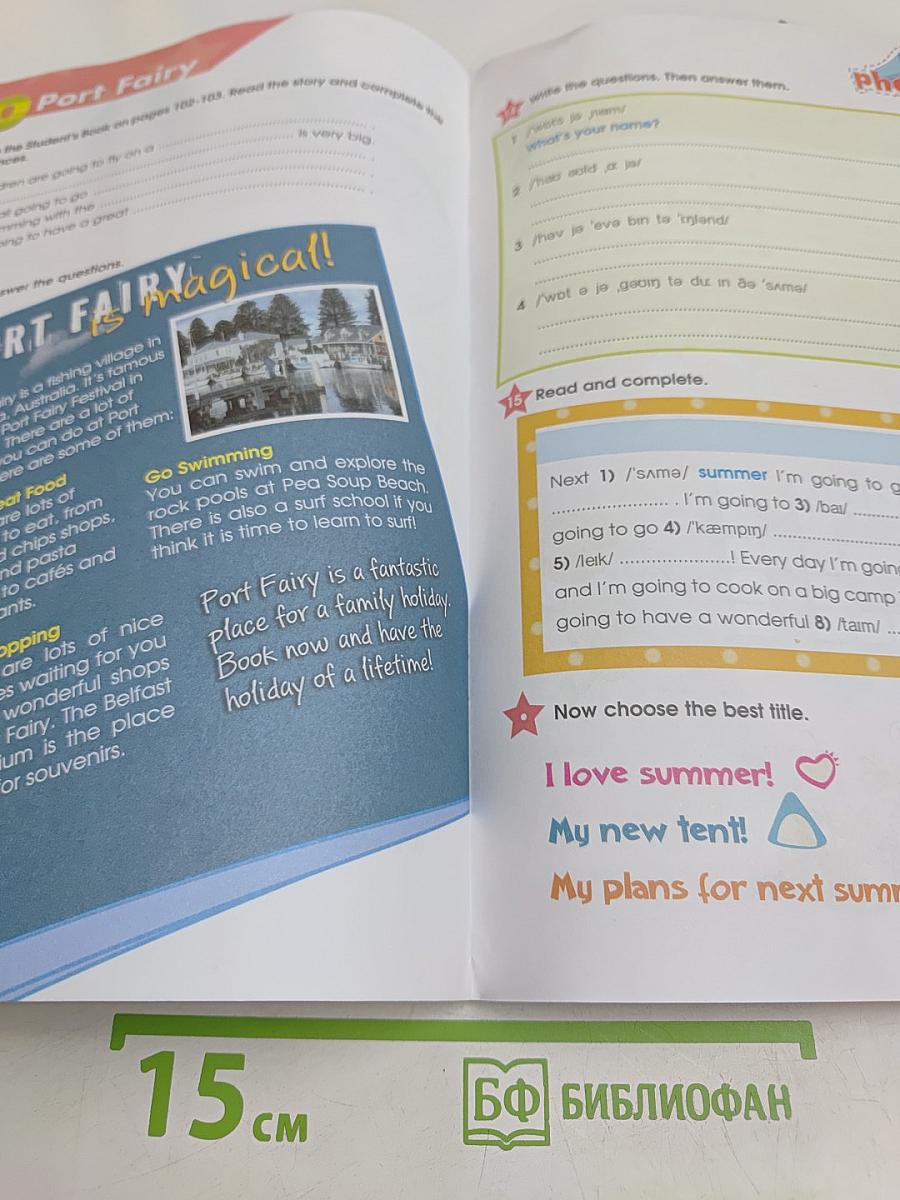 Port Fairy
the Student's Book on pages 102-103. Read the story and complete the
is very big.
dren are going to fly on a
going to go
mming with the
ing to have a great
swer the questions.
RT FAIRY
is magical!
iry is a fishing village in
Australia. It's famous
Port Fairy Festival in
There are a lot of
you can do at Port
ere are some of them:
eat Food
are lots of
to eat, from
d chips shops,
nd pasta
to cafés and
ants.
opping
are lots of nice
es waiting for you
wonderful shops
Fairy. The Belfast
ium is the place
for souvenirs.
Go Swimming
You can swim and explore the
rock pools at Pea Soup Beach.
There is also a surf school if you
think it is time to learn to surf!
Port Fairy is a fantastic
place for a family holiday.
Book now and have the
holiday of a lifetime!
Pho
Write the questions. Then answer them.
1 /wɒts jə ˌneɪm/
What's your name?
2 /haʊ əʊld ˌɑː jə/
3 /həv jə 'evə bɪn tə 'ɪŋlənd/
4 /'wɒt ə jə ˌgəʊɪŋ tə duː ɪn ðə 'sʌmə/
15 Read and complete.
Next 1) /'sʌmə/ summer I'm going to g
. I'm going to 3) /baɪ/
going to go 4) /'kæmpɪŋ/
5) /leɪk/ ! Every day I'm goin
and I'm going to cook on a big camp
going to have a wonderful 8) /taɪm/
Now choose the best title.
I love summer!
My new tent!
My plans for next summ
15 см
БФ БИБЛИОФАН